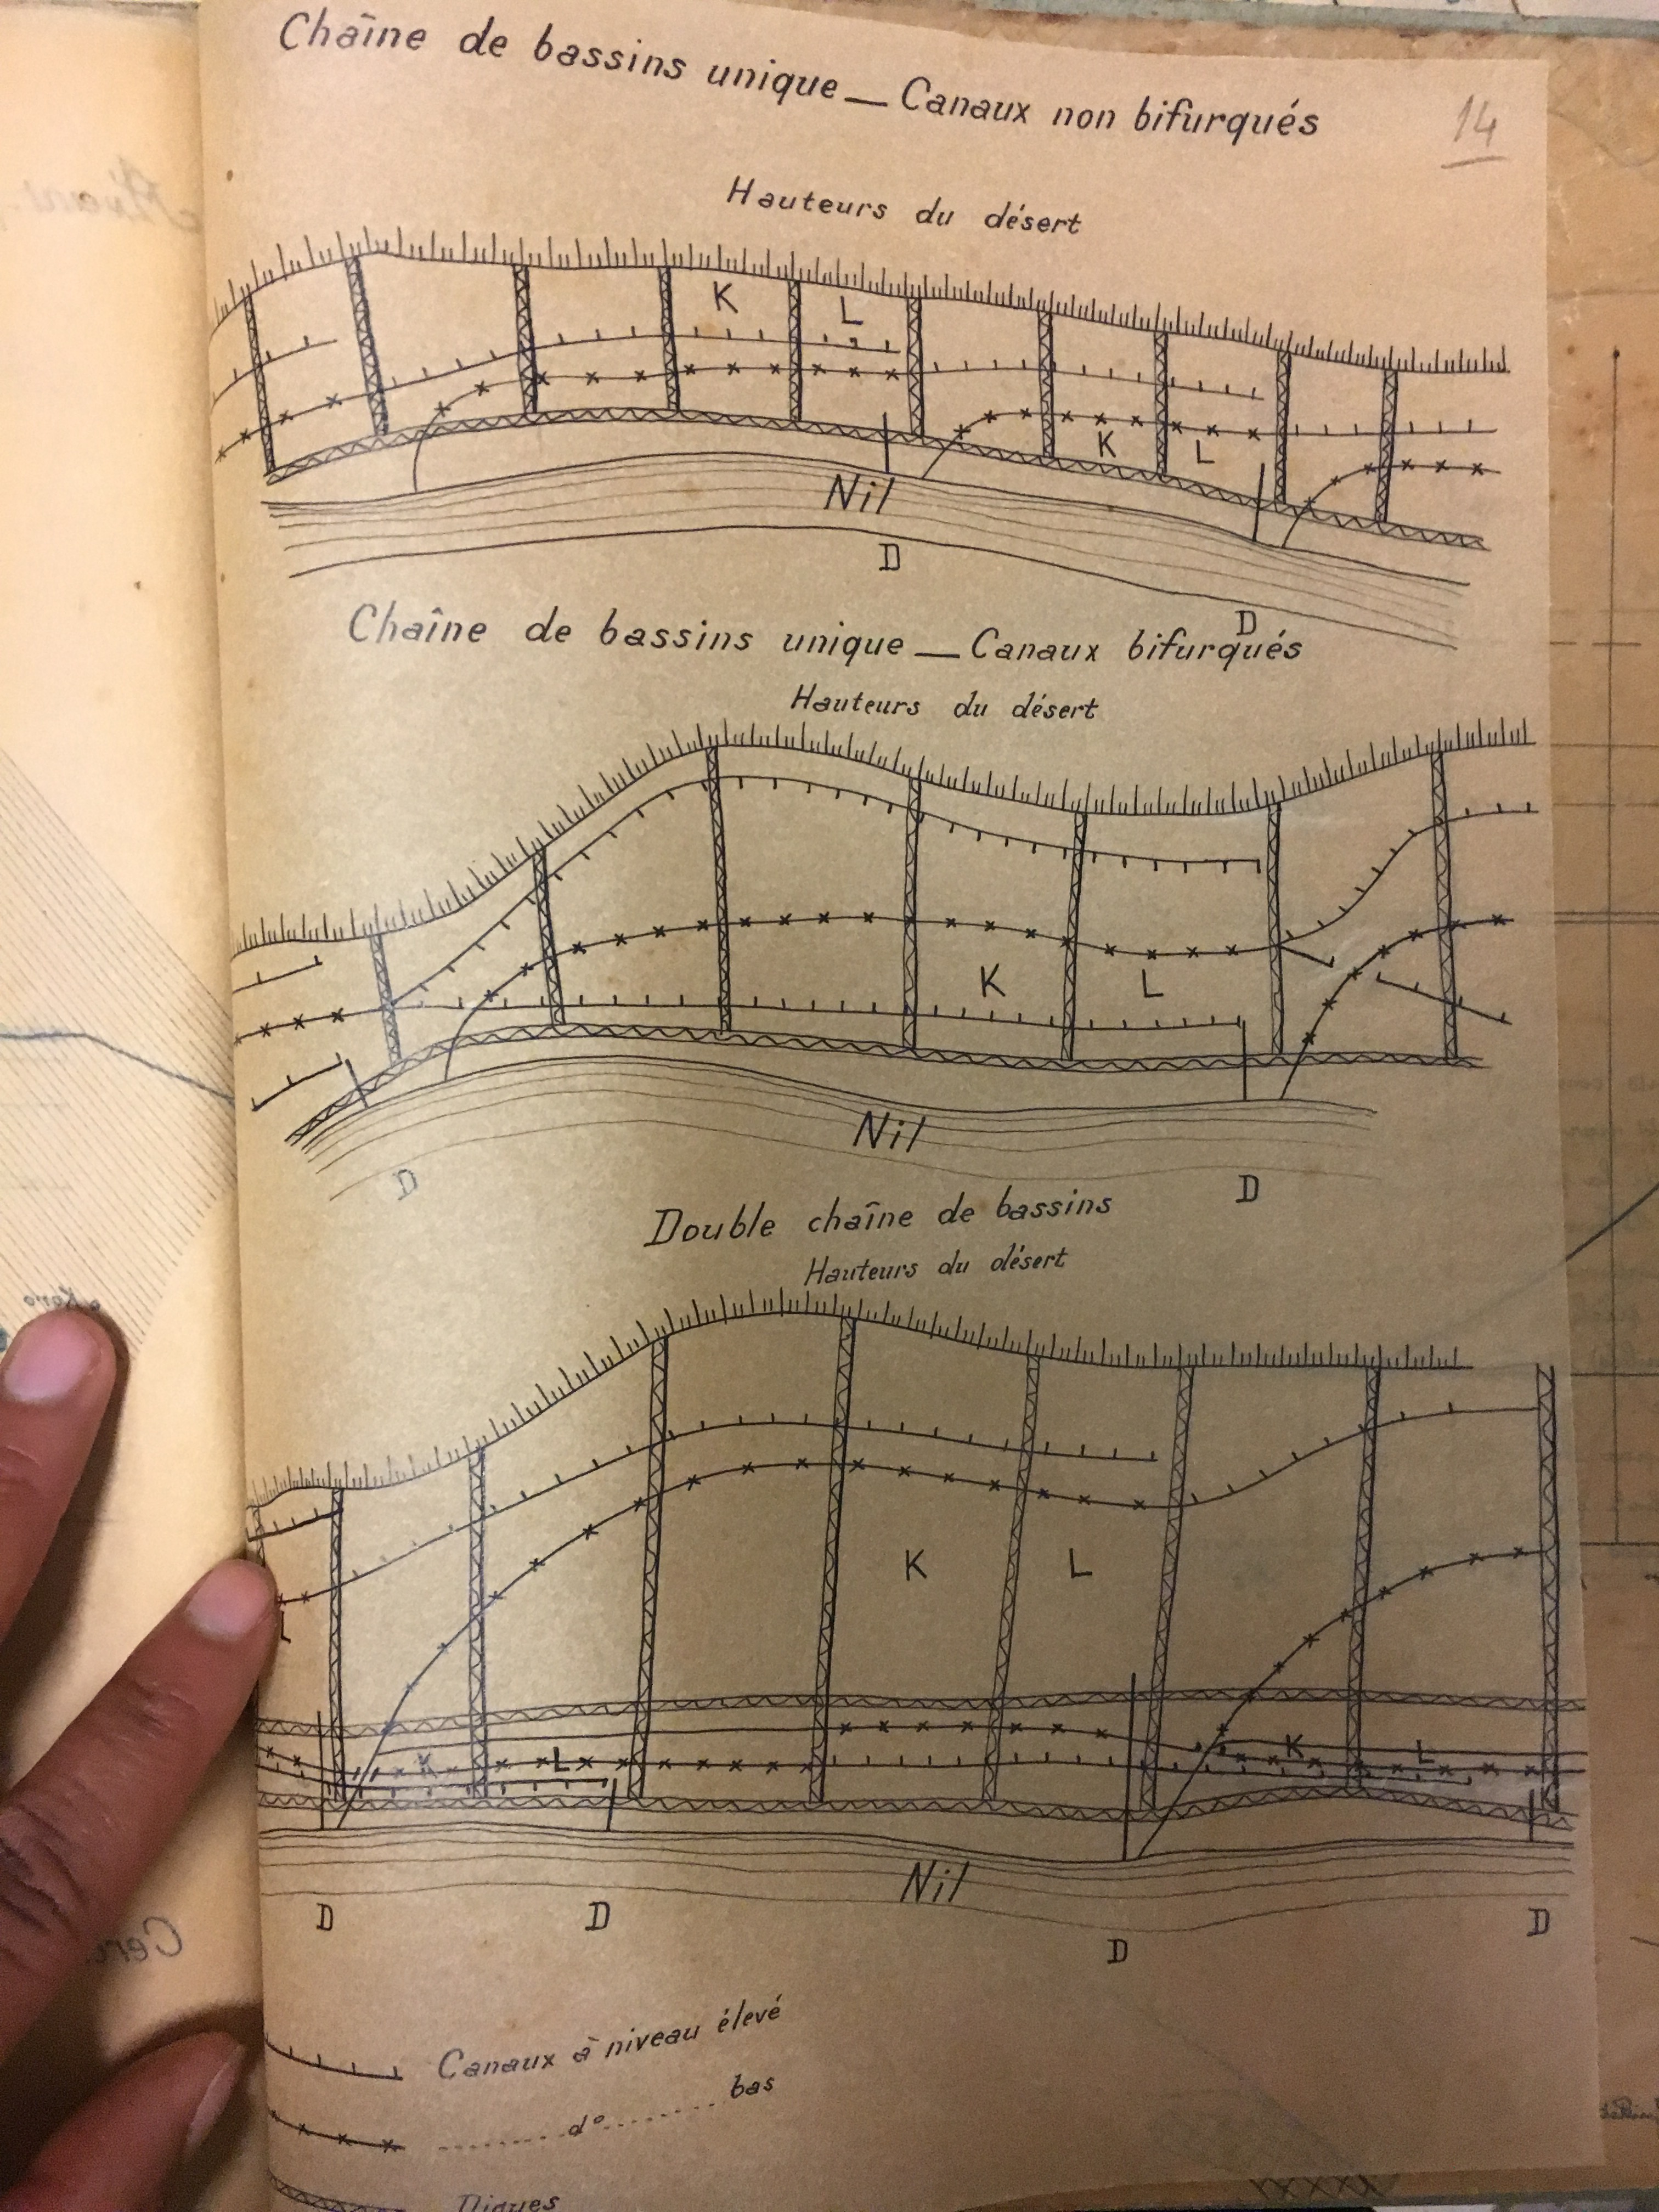 Chaîne de bassins unique — Canaux non bifurqués
14
Hauteurs du désert
K L
K L
Nil
D
D
Chaîne de bassins unique — Canaux bifurqués
Hauteurs du désert
K L
Nil
D D
Double chaîne de bassins
Hauteurs du désert
K L
L
K L K L
Nil
D D D D
Canaux à niveau élevé
d° bas
Digues